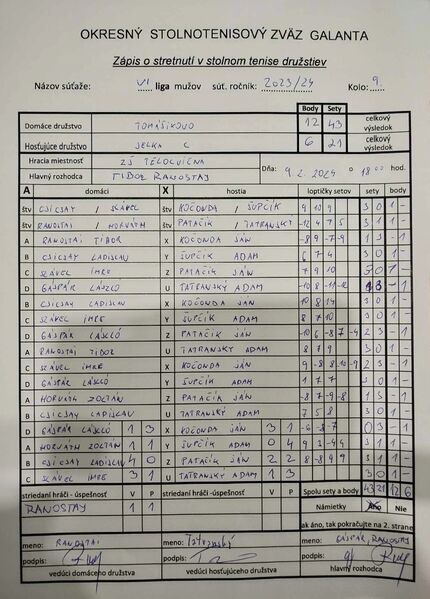 OKRESNÝ STOLNOTENISOVÝ ZVÄZ GALANTA
Zápis o stretnutí v stolnom tenise družstiev
Názov súťaže: VI liga mužov súť. ročník: 2023/24 Kolo: 9.
Body Sety
Domáce družstvo TOMÁŠIKOVO 12 43 celkový výsledok
Hosťujúce družstvo JELKA C 6 21 celkový výsledok
Hracia miestnosť ZŠ TELOCVIČŇA
Dňa: 9.2.2024 o 18:00 hod.
Hlavný rozhodca TIBOR RANOSTAJ
A domáci X hostia loptičky setov sety body
štv CSICSAY / SZÁVEL štv KOČONDA / ŠUPČÍK 4 10 9 3 0 1 -
štv RANOSTAJ / HORVÁTH štv PATAČIK / TATRANSKÝ -12 4 7 5 3 1 1 -
A RANOSTAJ TIBOR X KOČONDA JÁN -8 9 -7 -9 1 3 - 1
B CSICSAY LADISLAV Y ŠUPČÍK ADAM 6 7 4 3 0 1 -
C SZÁVEL IMRE Z PATAČIK JÁN 7 9 10 3 0 1 -
D GÁSPÁR LÁSZLÓ U TATRANSKÝ ADAM -10 8 -11 -12 1 3 - 1
B CSICSAY LADISLAV X KOČONDA JÁN 10 8 14 3 0 1 -
C SZÁVEL IMRE Y ŠUPČÍK ADAM 8 7 10 3 0 1 -
D GÁSPÁR LÁSZLÓ Z PATAČIK JÁN -10 6 -8 7 -9 2 3 - 1
A RANOSTAJ TIBOR U TATRANSKÝ ADAM 8 7 9 3 0 1 -
C SZÁVEL IMRE X KOČONDA JÁN 9 -8 8 -10 -9 2 3 - 1
D GÁSPÁR LÁSZLÓ Y ŠUPČÍK ADAM 1 7 7 3 0 1 -
A HORVÁTH ZOLTÁN Z PATAČIK JÁN -8 7 -9 -8 1 3 - 1
B CSICSAY LADISLAV U TATRANSKÝ ADAM 7 5 8 3 0 1 -
D GÁSPÁR LÁSZLÓ 1 3 X KOČONDA JÁN 3 1 -6 -8 -7 0 3 - 1
A HORVÁTH ZOLTÁN 1 1 Y ŠUPČÍK ADAM 0 4 3 1 1 -
B CSICSAY LADISLAV 4 0 Z PATAČIK JÁN 2 2 3 1 1 -
C SZÁVEL IMRE 3 1 U TATRANSKÝ ADAM 1 3 3 0 1 -
striedaní hráči - úspešnosť V P striedaní hráči - úspešnosť V P Spolu sety a body 43 21 12 6
RANOSTAJ 1 1 Námietky Áno Nie
ak áno, tak pokračujte na 2. strane
meno: RANOSTAJ meno: Tatranský meno: GÁSPÁR, RANOSTAJ
podpis: podpis: podpis:
vedúci domáceho družstva vedúci hosťujúceho družstva hlavný rozhodca